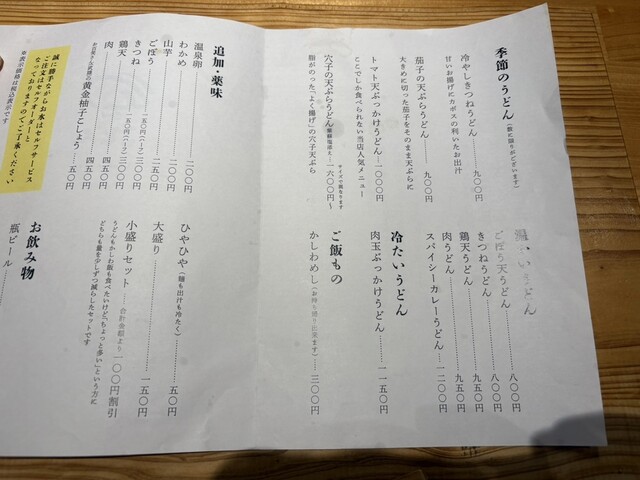 季節のうどん（数に限りがございます）
冷やしきつねうどん 九〇〇円
甘いお揚げとカボスの利いたお出汁
茄子の天ぷらうどん 九〇〇円
大きめに切った茄子をそのまま天ぷらに
トマト天ぶっかけうどん 一〇〇〇円
ここでしか食べられない当店人気メニュー
穴子の天ぷらうどん 一六〇〇円〜
サイズで異なります
脂がのった「よく揚げ」の穴子天ぷら
温かいうどん
ごぼう天うどん 八〇〇円
きつねうどん 八〇〇円
鶏天うどん 九五〇円
肉うどん 九五〇円
スパイシーカレーうどん 一二〇〇円
冷たいうどん
肉玉ぶっかけうどん 一一五〇円
ご飯もの
かしわめし（お持ち帰り出来ます） 三〇〇円
追加・薬味
温泉卵
わかめ 二〇〇円
山芋 二〇〇円
ごぼう 二五〇円
きつね 一五〇円（ハーフ） 三〇〇円
鶏天 一五〇円（ハーフ） 三〇〇円
肉 四五〇円
黄金柚子こしょう 五〇円
ひやひや（麺も出汁も冷たく） 五〇円
大盛り 一五〇円
小盛りセット 合計金額より 一〇〇円割引
うどんもかしわ飯も食べたいけど、「ちょっと多い」という方に
どちらも量を少しずつ減らしたセットです
お飲み物
瓶ビール
誠に勝手ながらお水はセルフサービス
ご注文はセルフオーダーと
なっておりますのでご了承ください
※表示価格は税込表示です